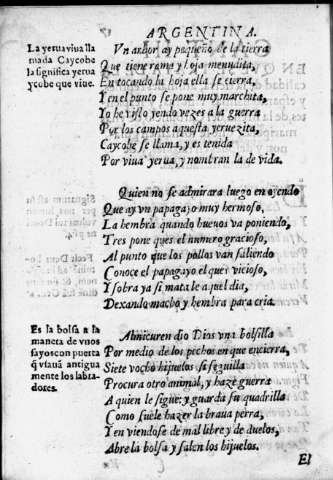 ARGENTINA.
La yerua viua lla
mada Caycobe
la significa yerua
ycobe que viue.
Vn arbor ay pequeño de la tierra
Que tiene rama y hoja menudita,
En tocando la hoja ella se cierra,
Y en el punto se pone muy marchita,
Yo he visto yendo vezes a la guerra
Por los campos aquesta yeruezita,
Caycobe se llama, y es tenida
Por viua yerua, y nombran la de vida.
Quien no se admirara luego en oyendo
Que ay vn papagayo muy hermoso,
La hembra quando hueuos va poniendo,
Tres pone ques el numero gracioso,
Al punto que los pollos van saliendo
Conoce el papagayo el ques vicioso,
Y sobra ya si mata le aquel dia,
Dexando macho y hembra para cria.
Es la bolsa a la
maneta de vnos
sayos con puerta
q̃ vsauã antigua
mente los labra-
dores.
Al micuren dio Dios vna bolsilla
Por medio de los pechos en que encierra,
Siete v ocho hijuelos si seguilla
Procura otro animal, y haze guerra
A quien le sigue: y guarda su quadrilla
Como suele hazer la braua perra,
Y en viendose de mal libre y de duelos,
Abre la bolsa y salen los hijuelos.
El